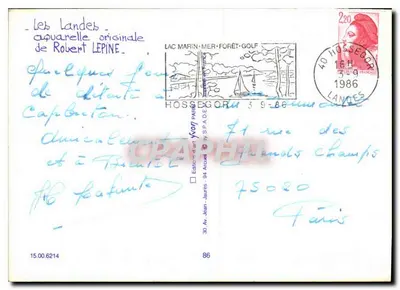 Les Landes
aquarelle originale
de Robert LEPINE
LAC MARIN-MER-FORÊT-GOLF
HOSSEGOR
3-9-86
40 HOSSEGOR
16H
3-9
1986
LANDES
2,20
Quelques jours
de détente à
Capbreton.
Amicalement
et à Bientôt
71 rue des
Grands Champs
75020
Paris
yvon
30 Av. Jean-Jaurès - 94 Arcueil
15.00.6214
86